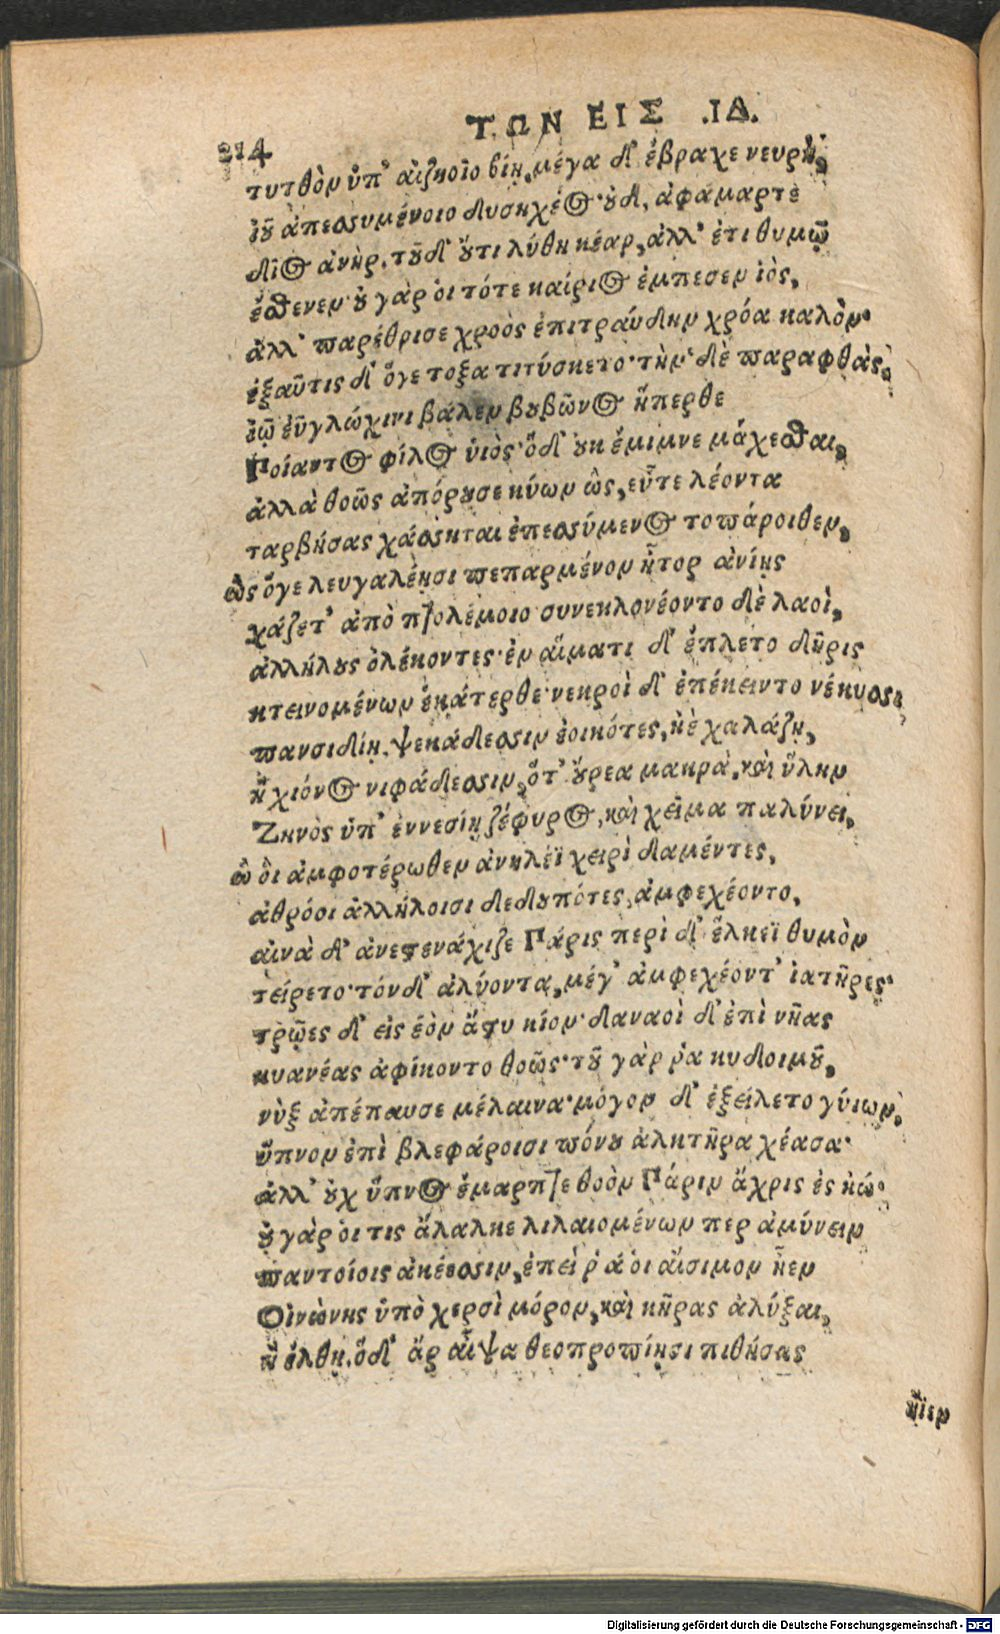 214 ΤΩΝ ΕΙΣ .ΙΔ.
τυτθὸν ὑπ' αἰζηοῖο βίῃ. μέγα δ' ἔβραχε νευρὴ,
ἰοῦ ἀπεσσυμένοιο δυσηχέος· οὐδ' ἀφάμαρτε
δῖος ἀνὴρ. τοῦ δ' οὔτι λύθη κέαρ, ἀλλ' ἔτι θυμῷ
ἔσθενεν· οὐ γάρ οἱ τότε καίριος ἔμπεσεν ἰὸς,
ἀλλ' παρέθρισε χροὸς ἐπιγράυδην χρόα καλὸν·
ἐξαῦτις δ' ὅγε τόξα τιτύσκετο· τὴν δὲ παραφθὰς,
ἰῷ ἐϋγλώχινι βάλεν βουβῶνος ὕπερθε
Ποίαντος φίλος υἱὸς· ὅδ' οὐκ ἔμιμνε μάχεσθαι,
ἀλλὰ θοῶς ἀπόρουσε κύων ὣς, εὖτε λέοντα
ταρβήσας χάσσηται ἐπεσσύμενος τοπάροιθεν,
ὣς ὅγε λευγαλέῃσι πεπαρμένον ἦτορ ἀνίῃς
χάζετ' ἀπὸ πτολέμοιο συνεκλονέοντο δὲ λαοὶ,
ἀλλήλους ὀλέκοντες· ἐν αἵματι δ' ἔπλετο δῆρις
κτεινομένων ἑκάτερθε· νεκροὶ δ' ἐπέκειντο νέκυσσι
πανσιδίῃ. ψεκάδεσσιν ἐοικότες, ἠὲ χαλάζῃ,
ἢ χιόνος νιφάδεσσιν, ὅτ' οὔρεα μακρὰ, καὶ ὕλην
Ζηνὸς ὑπ' ἐννεσίῃ ζέφυρος, καὶ χεῖμα παλύνει,
ὣ οἳ ἀμφοτέρωθεν ἀνηλέϊ χειρὶ δαμέντες,
ἀθρόοι ἀλλήλοισι δεδουπότες, ἀμφεχέοντο,
αἰνὰ δ' ἀνεστενάχιζε Πάρις περὶ δ' ἕλκεϊ θυμὸν
τείρετο· τόνδ' ἀλύοντα, μέγ' ἀμφεχέοντ' ἰατῆρες·
τρῶες δ' εἰς ἑὸν ἄστυ κίον· δαναοὶ δ' ἐπὶ νῆας
κυανέας ἀφίκοντο θοῶς· τοῦ γάρ ῥα κυδοιμοῦ,
νὺξ ἀπέπαυσε μέλαινα· μόγον δ' ἐξείλετο γύιων,
ὕπνον ἐπὶ βλεφάροισι πόνου ἀλκτῆρα χέασα·
ἀλλ' οὐχ ὕπνος ἔμαρπτε θοὸν Πάριν ἄχρις ἐς ἠώ·
οὐ γάρ οἱ τις ἄλαλκε λιλαιομένων περ ἀμύνειν
παντοίοις ἀκέεσσιν, ἐπεί ῥά οἱ αἴσιμον ἦεν
Οἰνώνης ὑπὸ χερσὶ μόρον, καὶ κῆρας ἀλύξαι,
ἢ ἔλθῃ. ὅδ' ἄρ αἶψα θεοπροπίῃσι πιθήσας
ἤϊεν
Digitalisierung gefördert durch die Deutsche Forschungsgemeinschaft - DFG